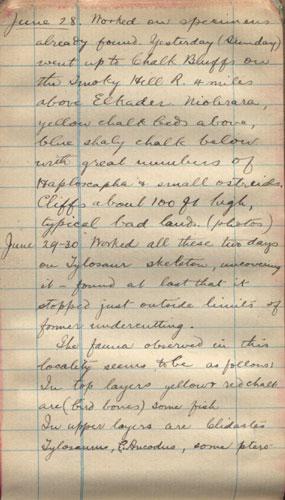 June 28. Worked on specimens
already found. Yesterday (Sunday)
went up to Chalk Bluffs on
the Smoky Hill R. 4 miles
above Elkader. Niobrara,
yellow chalk beds above,
blue shaly chalk below
with great numbers of
Haploscapha & small ostreids.
Cliffs about 100 ft high,
typical bad land. (photos)
June 29-30 Worked all these two days
on Tylosaur skeleton, uncovering
it - found at last that it
stopped just outside limits of
former undercutting.
The fauna observed in this
locality seems to be as follows:
In top layers yellow & red chalk
are (bird bones) some fish
In upper layers are Clidastes
Tylosaurus, some ptero-